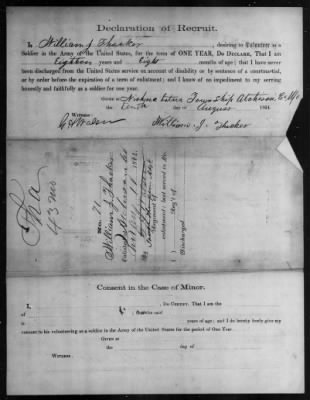 Declaration of Recruit.
I, William J. Thacker, desiring to Volunteer as a
Soldier in the Army of the United States, for the term of ONE YEAR, Do DECLARE, That I am
Eighteen years and Eight months of age; that I have never
been discharged from the United States service on account of disability or by sentence of a court-martial,
or by order before the expiration of a term of enlistment; and I know of no impediment to my serving
honestly and faithfully as a soldier for one year.
GIVEN AT Township Atchison Co Mo
The Tenth day of August 1864.
WITNESS:
William J. Thacker
43 Mo
No. 71
William J. Thacker
1864
Regiment of
last served in
Reg't of
Discharged
Consent in the Case of Minor.
I, DO CERTIFY, That I am the
of ; that the said
is years of age; and I do hereby freely give my
consent to his volunteering as a soldier in the Army of the United States for the period of ONE YEAR.
GIVEN AT
the day of
WITNESS: